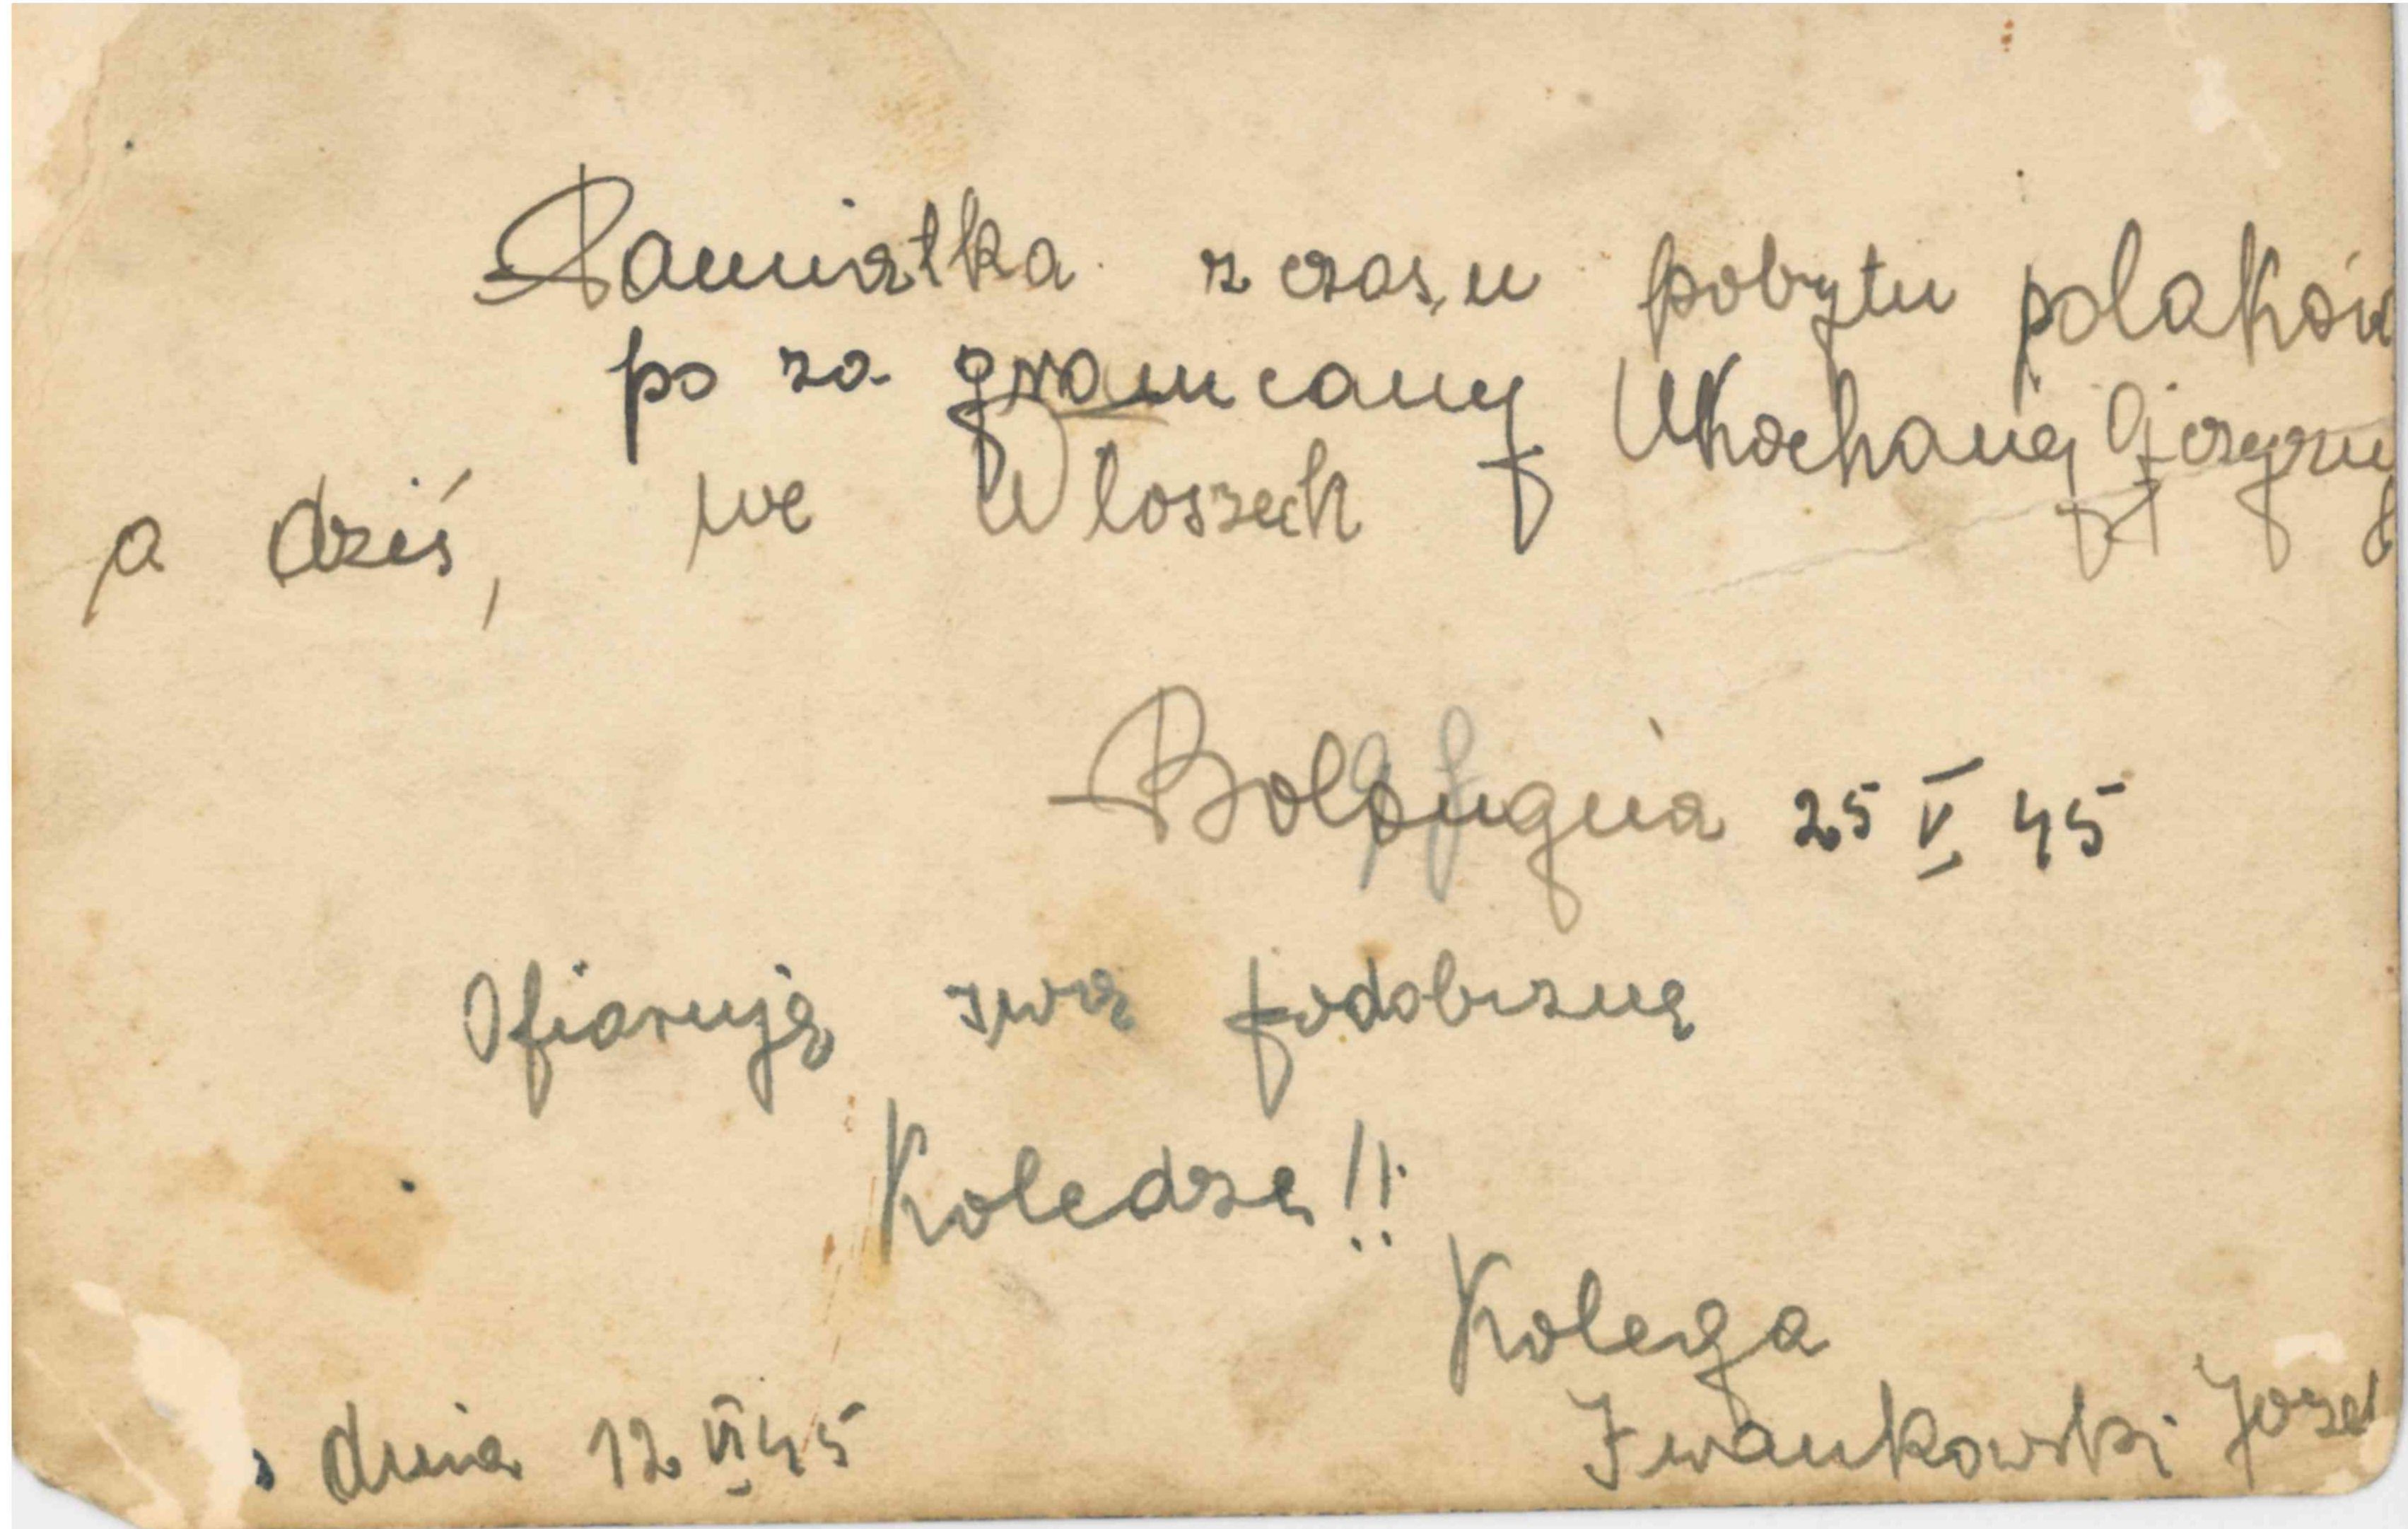 Pamiątka z czasu pobytu polaków
po za granicamy Ukochanej Ojczyzny
a dziś, we Wloszech
Bolongnia 25 V 45
Ofiaruję swą podobiznę
Koledze!!
Kolega
Iwankowski Jozef
dnia 12 VI 45